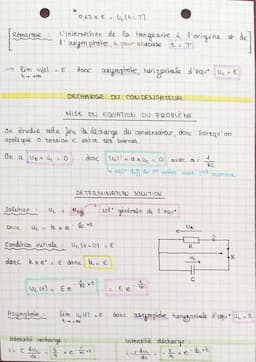 * 0,63 x E = Uc (t = T)
Remarque : L'intersection de la tangente à l'origine et de
l'asymptote, a pour abscisse t = T
→ lim Uc(t) = E donc asymptote horizontale d'équ° Uc = E
t → +∞
DÉCHARGE DU CONDENSATEUR
MISE EN ÉQUATION DU PROBLÈME
On étudie cette fois la décharge du condensateur, donc lorsqu'on
applique 0 tension E entre ses bornes.
On a UR + Uc = 0 donc Uc' + a x Uc = 0 avec a = 1/RC
→ équ° diff du 1er ordre sans 2nd membre
DÉTERMINATION SOLUTION
Solution Uc = sol° générale de l'équ°
Donc Uc = k x e
Condition initiale Uc (t=0) = E
donc k x e⁰ = E donc k = E
Uc (t) = E e = E e
Asymptote : lim Uc (t) = 0 donc asymptote horizontale d'équ° Uc = 0
t → +∞
UR
i
R
Uc
K
C
Intensité recharge
Intensité décharge